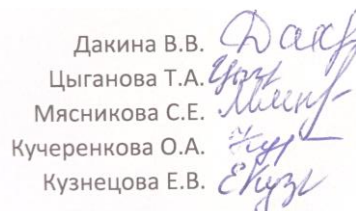 Дакина В.В.
Цыганова Т.А.
Мясникова С.Е.
Кучеренкова О.А.
Кузнецова Е.В.